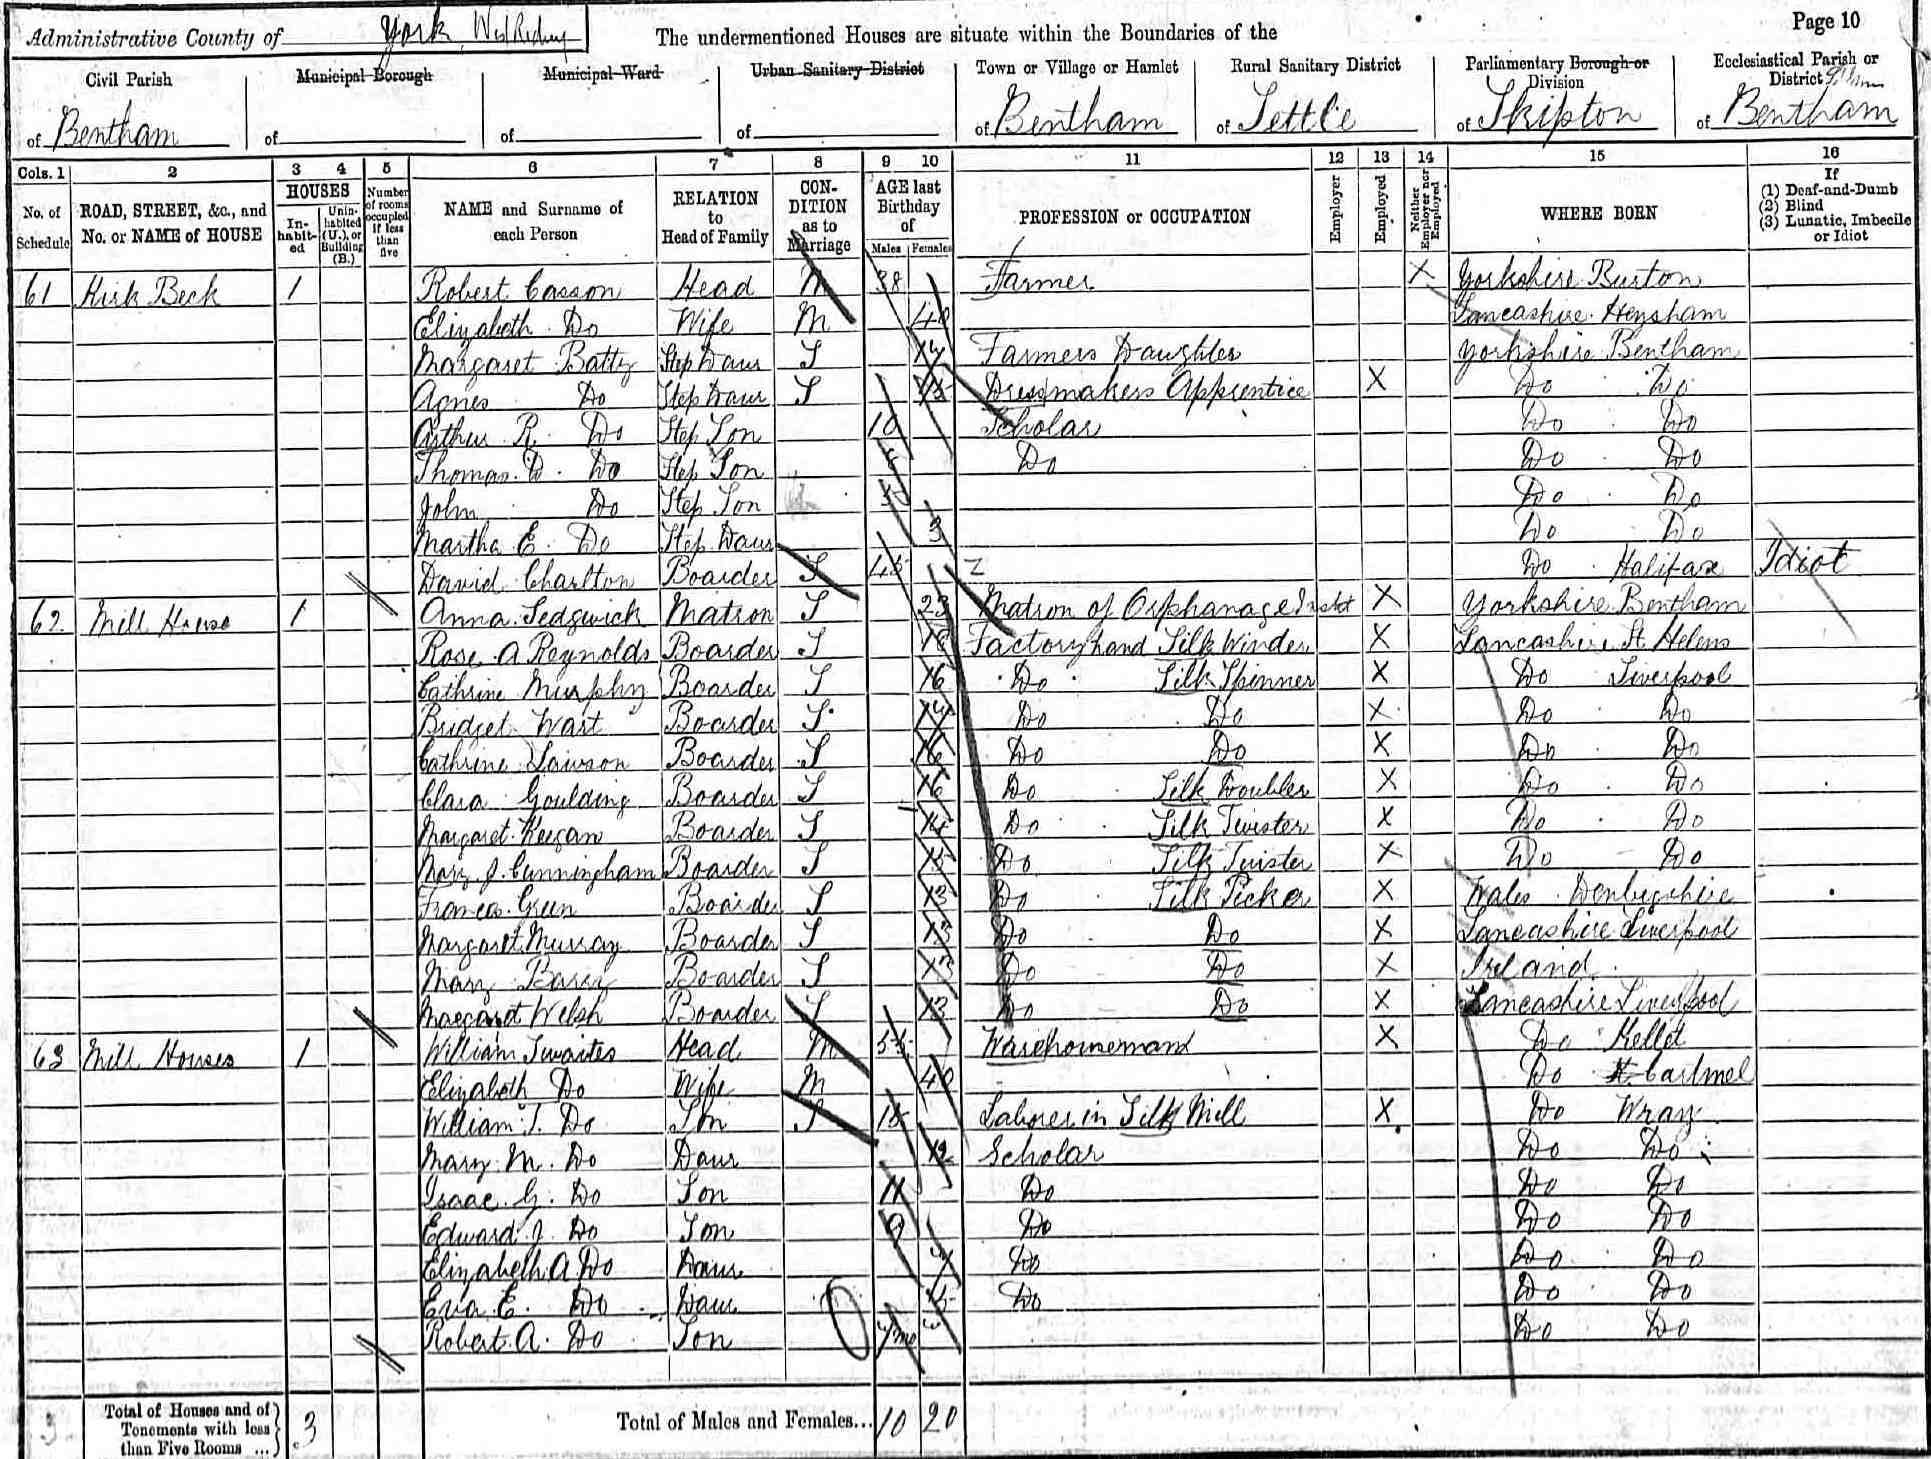 Page 10
Administrative County of York, W. Riding The undermentioned Houses are situate within the Boundaries of the
Civil Parish of Bentham
Municipal Borough of
Municipal Ward of
Urban Sanitary District of
Town or Village or Hamlet of Bentham
Rural Sanitary District of Settle
Parliamentary Borough or Division of Skipton
Ecclesiastical Parish or District of Bentham
Cols. 1 2 3 4 5 6 7 8 9 10 11 12 13 14 15 16
No. of Schedule
ROAD, STREET, &c., and No. or NAME of HOUSE
HOUSES
In-habit-ed
Unin-habited (U.), or Building (B.)
Number of rooms occupied if less than five
NAME and Surname of each Person
RELATION to Head of Family
CON-DITION as to Marriage
AGE last Birthday of
Males Females
PROFESSION or OCCUPATION
Employer
Employed
Neither Employer nor Employed
WHERE BORN
If
(1) Deaf-and-Dumb
(2) Blind
(3) Lunatic, Imbecile or Idiot
61 Kirk Beck 1 Robert Casson Head M 38 Farmer X Yorkshire Burton
Elizabeth Do Wife M 40 Lancashire Heysham
Margaret Batty Step Daur S Farmers Daughter Yorkshire Bentham
Agnes Do Step Daur S 15 Dressmakers Apprentice X Do Do
Arthur R. Do Step Son 10 Scholar Do Do
Thomas D. Do Step Son Do Do Do
John Do Step Son 5 Do Do
Martha E. Do Step Daur 3 Do Do
David Charlton Boarder S 45 Do Halifax Idiot
62 Mill House 1 Anna Sedgwick Matron S 23 Matron of Orphanage Inst X Yorkshire Bentham
Rose A Reynolds Boarder S 18 Factory hand Silk Winder X Lancashire St. Helens
Cathrine Murphy Boarder S 16 Do Silk Spinner X Do Liverpool
Bridget Wart Boarder S Do Do X Do Do
Cathrine Lawson Boarder S 16 Do Do X Do Do
Clara Goulding Boarder S 16 Do Silk Doubler X Do Do
Margaret Keegan Boarder S 14 Do Silk Twister X Do Do
Mary J. Cunningham Boarder S 15 Do Silk Twister X Do Do
Frances Green Boarder S 13 Do Silk Picker X Wales Denbigshire
Margaret Murray Boarder S 13 Do Do X Lancashire Liverpool
Mary Boarder S 13 Do Do X Ireland
Margaret Welsh Boarder S 13 Do Do X Lancashire Liverpool
63 Mill Houses 1 William Twaites Head M Warehouseman X Do Kellet
Elizabeth Do Wife M 40 Do Cartmel
William T. Do Son S 15 Laborer in Silk Mill X Do Wray
Mary M. Do Daur 12 Scholar Do Do
Isaac G. Do Son 11 Do Do Do
Edward J. Do Son 9 Do Do Do
Elizabeth A Do Daur 7 Do Do Do
Eva E. Do Daur 5 Do Do Do
Robert A. Do Son Do Do
3 Total of Houses and of Tenements with less than Five Rooms ... 3 Total of Males and Females... 10 20